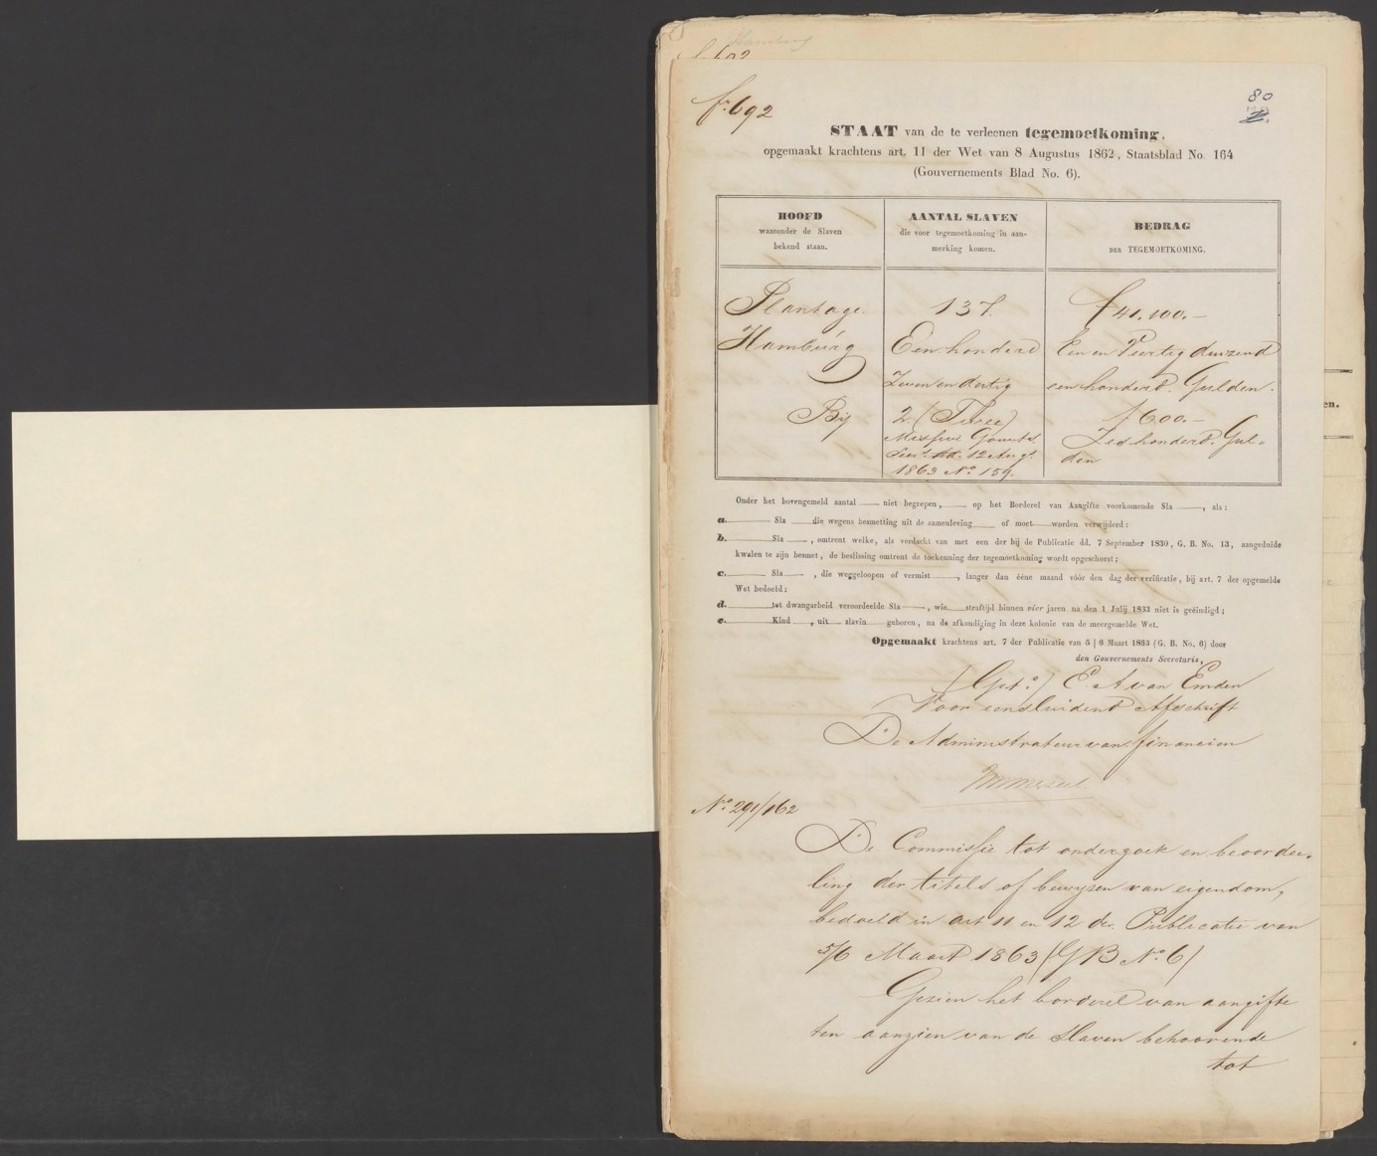 f. 692
80
STAAT van de te verleenen tegemoetkoming,
opgemaakt krachtens art. 11 der Wet van 8 Augustus 1862, Staatsblad No. 164
(Gouvernements Blad No. 6).
HOOFD
waaronder de Slaven
bekend staan.
AANTAL SLAVEN
die voor tegemoetkoming in aan-
merking komen.
BEDRAG
DER TEGEMOETKOMING.
Plantage
Hamburg
137.
Een honderd
Zeven en dertig
f 41.100.-
Een en Veertig duizend
een honderd Gulden.
Bij
2 (Twee)
Missive Gouvts
Secrs dd. 12 Augt
1863 No 159.
f 600.-
Zes honderd Gul-
den
Onder het bovengemeld aantal niet begrepen, op het Borderel van Aangifte voorkomende Sla , als:
a. Sla die wegens besmetting uit de samenleving of moet worden verwijderd:
b. Sla , omtrent welke, als verdacht van met een der bij de Publicatie dd. 7 September 1830, G. B. No. 13, aangeduide
kwalen te zijn besmet, de beslissing omtrent de toekenning der tegemoetkoming wordt opgeschorst;
c. Sla , die weggeloopen of vermist , langer dan ééne maand vóór den dag der verificatie, bij art. 7 der opgemelde
Wet bedoeld;
d. tot dwangarbeid veroordeelde Sla , wie straftijd binnen vier jaren na den 1 Julij 1833 niet is geëindigd;
e. Kind , uit slavin geboren, na de afkondiging in deze kolonie van de meergemelde Wet.
Opgemaakt krachtens art. 7 der Publicatie van 5 | 6 Maart 1863 (G. B. No. 6) door
den Gouvernements Secretaris,
(Get.) E A van Emden
Voor eensluidend Afschrift
De Administrateur van finanCien
No 291/162
De Commissie tot onderzoek en beoordee-
ling der titels of bewijzen van eigendom,
bedoeld in art 11 en 12 der Publicatie van
5/6 Maart 1863 (GB No 6)
Gezien het borderel van aangifte
ten aanzien van de slaven behoorende
tot
en.